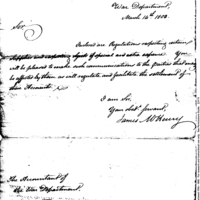 War Department,
March 10th 1800.
Sir,
Inclosed are Regulations respecting certain
Supplies and respecting objects of special and extra expense. You
will be pleased to make such communications to the parties that may
be affected by them as will regulate and facilitate the settlement of
their Accounts.
I am Sir,
Your Obt. Servant,
James McHenry
The Accountant of
the War Department.